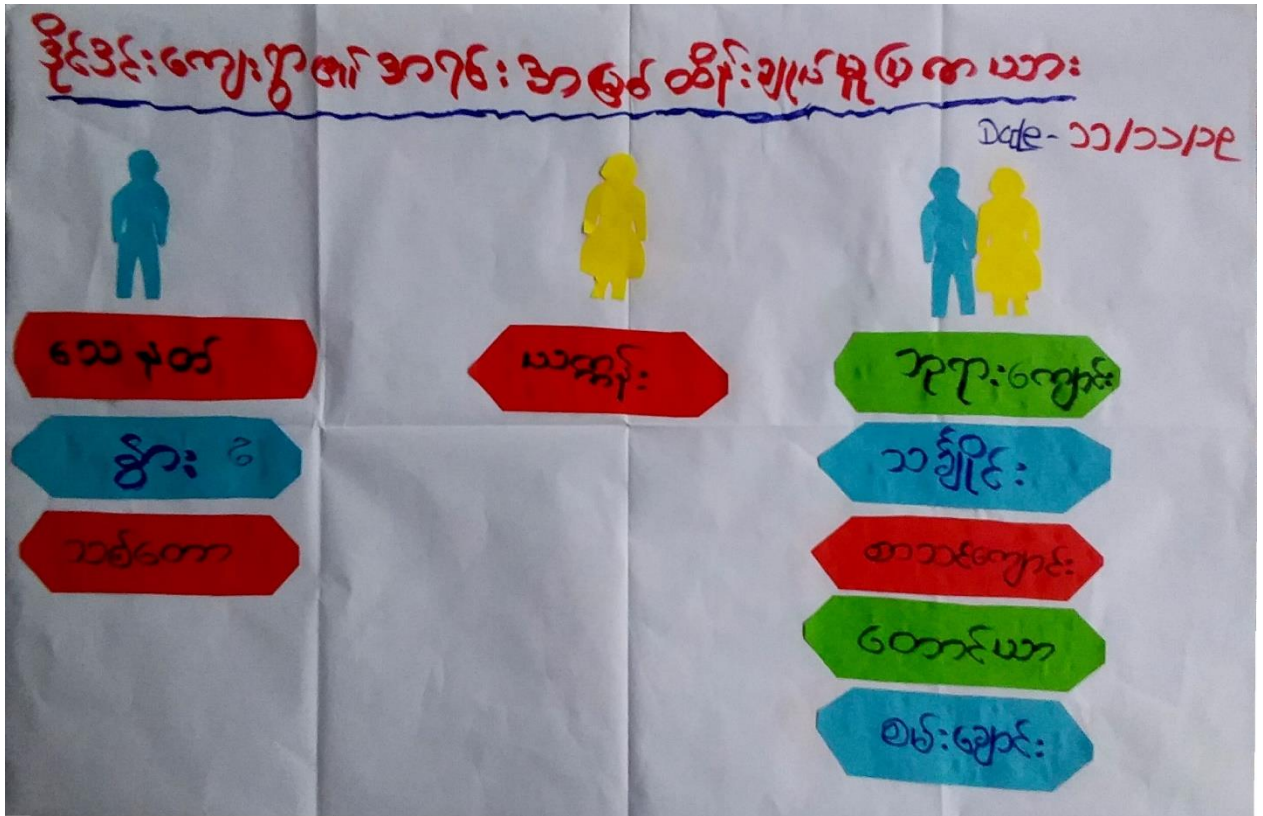 ဒိုင်ဒင်းကျေးရွာ၏ အရင်းအမြစ် ထိန်းချုပ်မှုပြဇယား
Date- ၁၁/၁၁/၁၉
သေနတ်
ယက္ကန်း
ဘုရားကျောင်း
နွား ၆
သင်္ချိုင်း
သစ်တော
စာသင်ကျောင်း
တောင်ယာ
စမ်းချောင်း